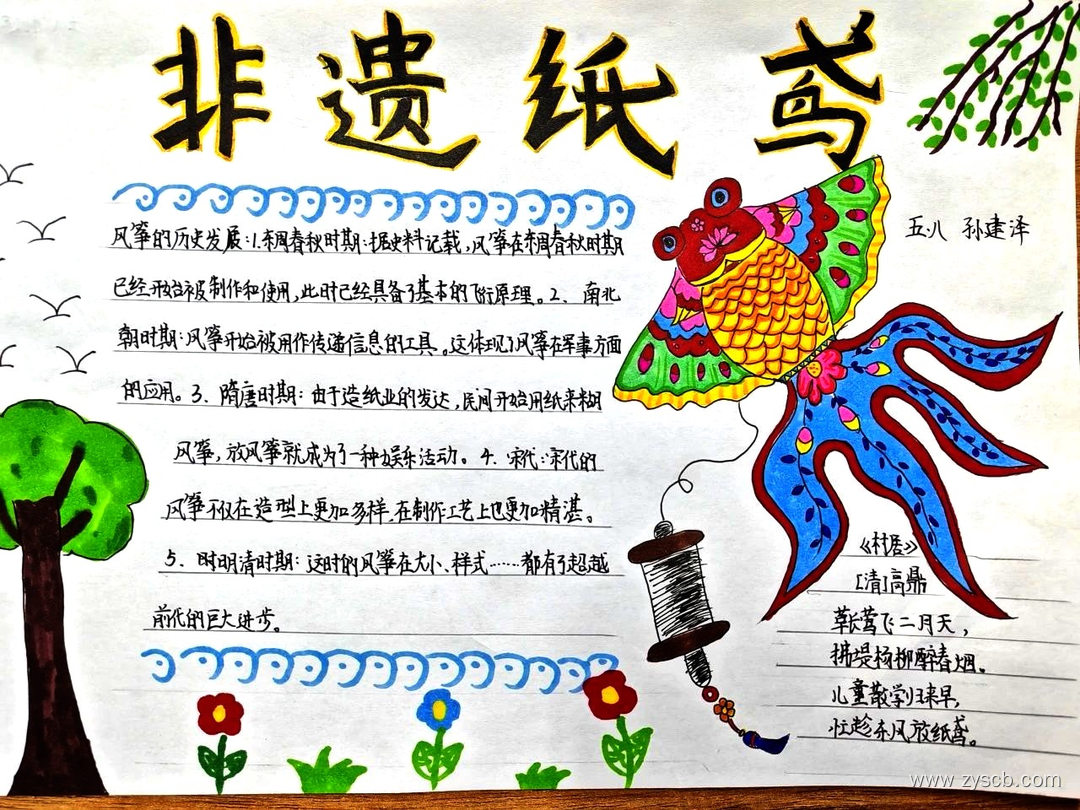 非遗纸鸢
五.八 孙建泽
风筝的历史发展:1.东周春秋时期:据史料记载,风筝在东周春秋时期
已经开始被制作和使用,此时已经具备了基本的飞行原理。2、南北
朝时期:风筝开始被用作传递信息的工具。这体现了风筝在军事方面
的应用。3、隋唐时期:由于造纸业的发达,民间开始用纸来糊
风筝,放风筝就成为了一种娱乐活动。4、宋代:宋代的
风筝不仅在造型上更加多样,在制作工艺上也更加精湛。
5、明清时期:这时的风筝在大小、样式……都有了超越
前代的巨大进步。
《村居》
[清]高鼎
草长莺飞二月天,
拂堤杨柳醉春烟。
儿童散学归来早,
忙趁东风放纸鸢。
www.zyscb.com